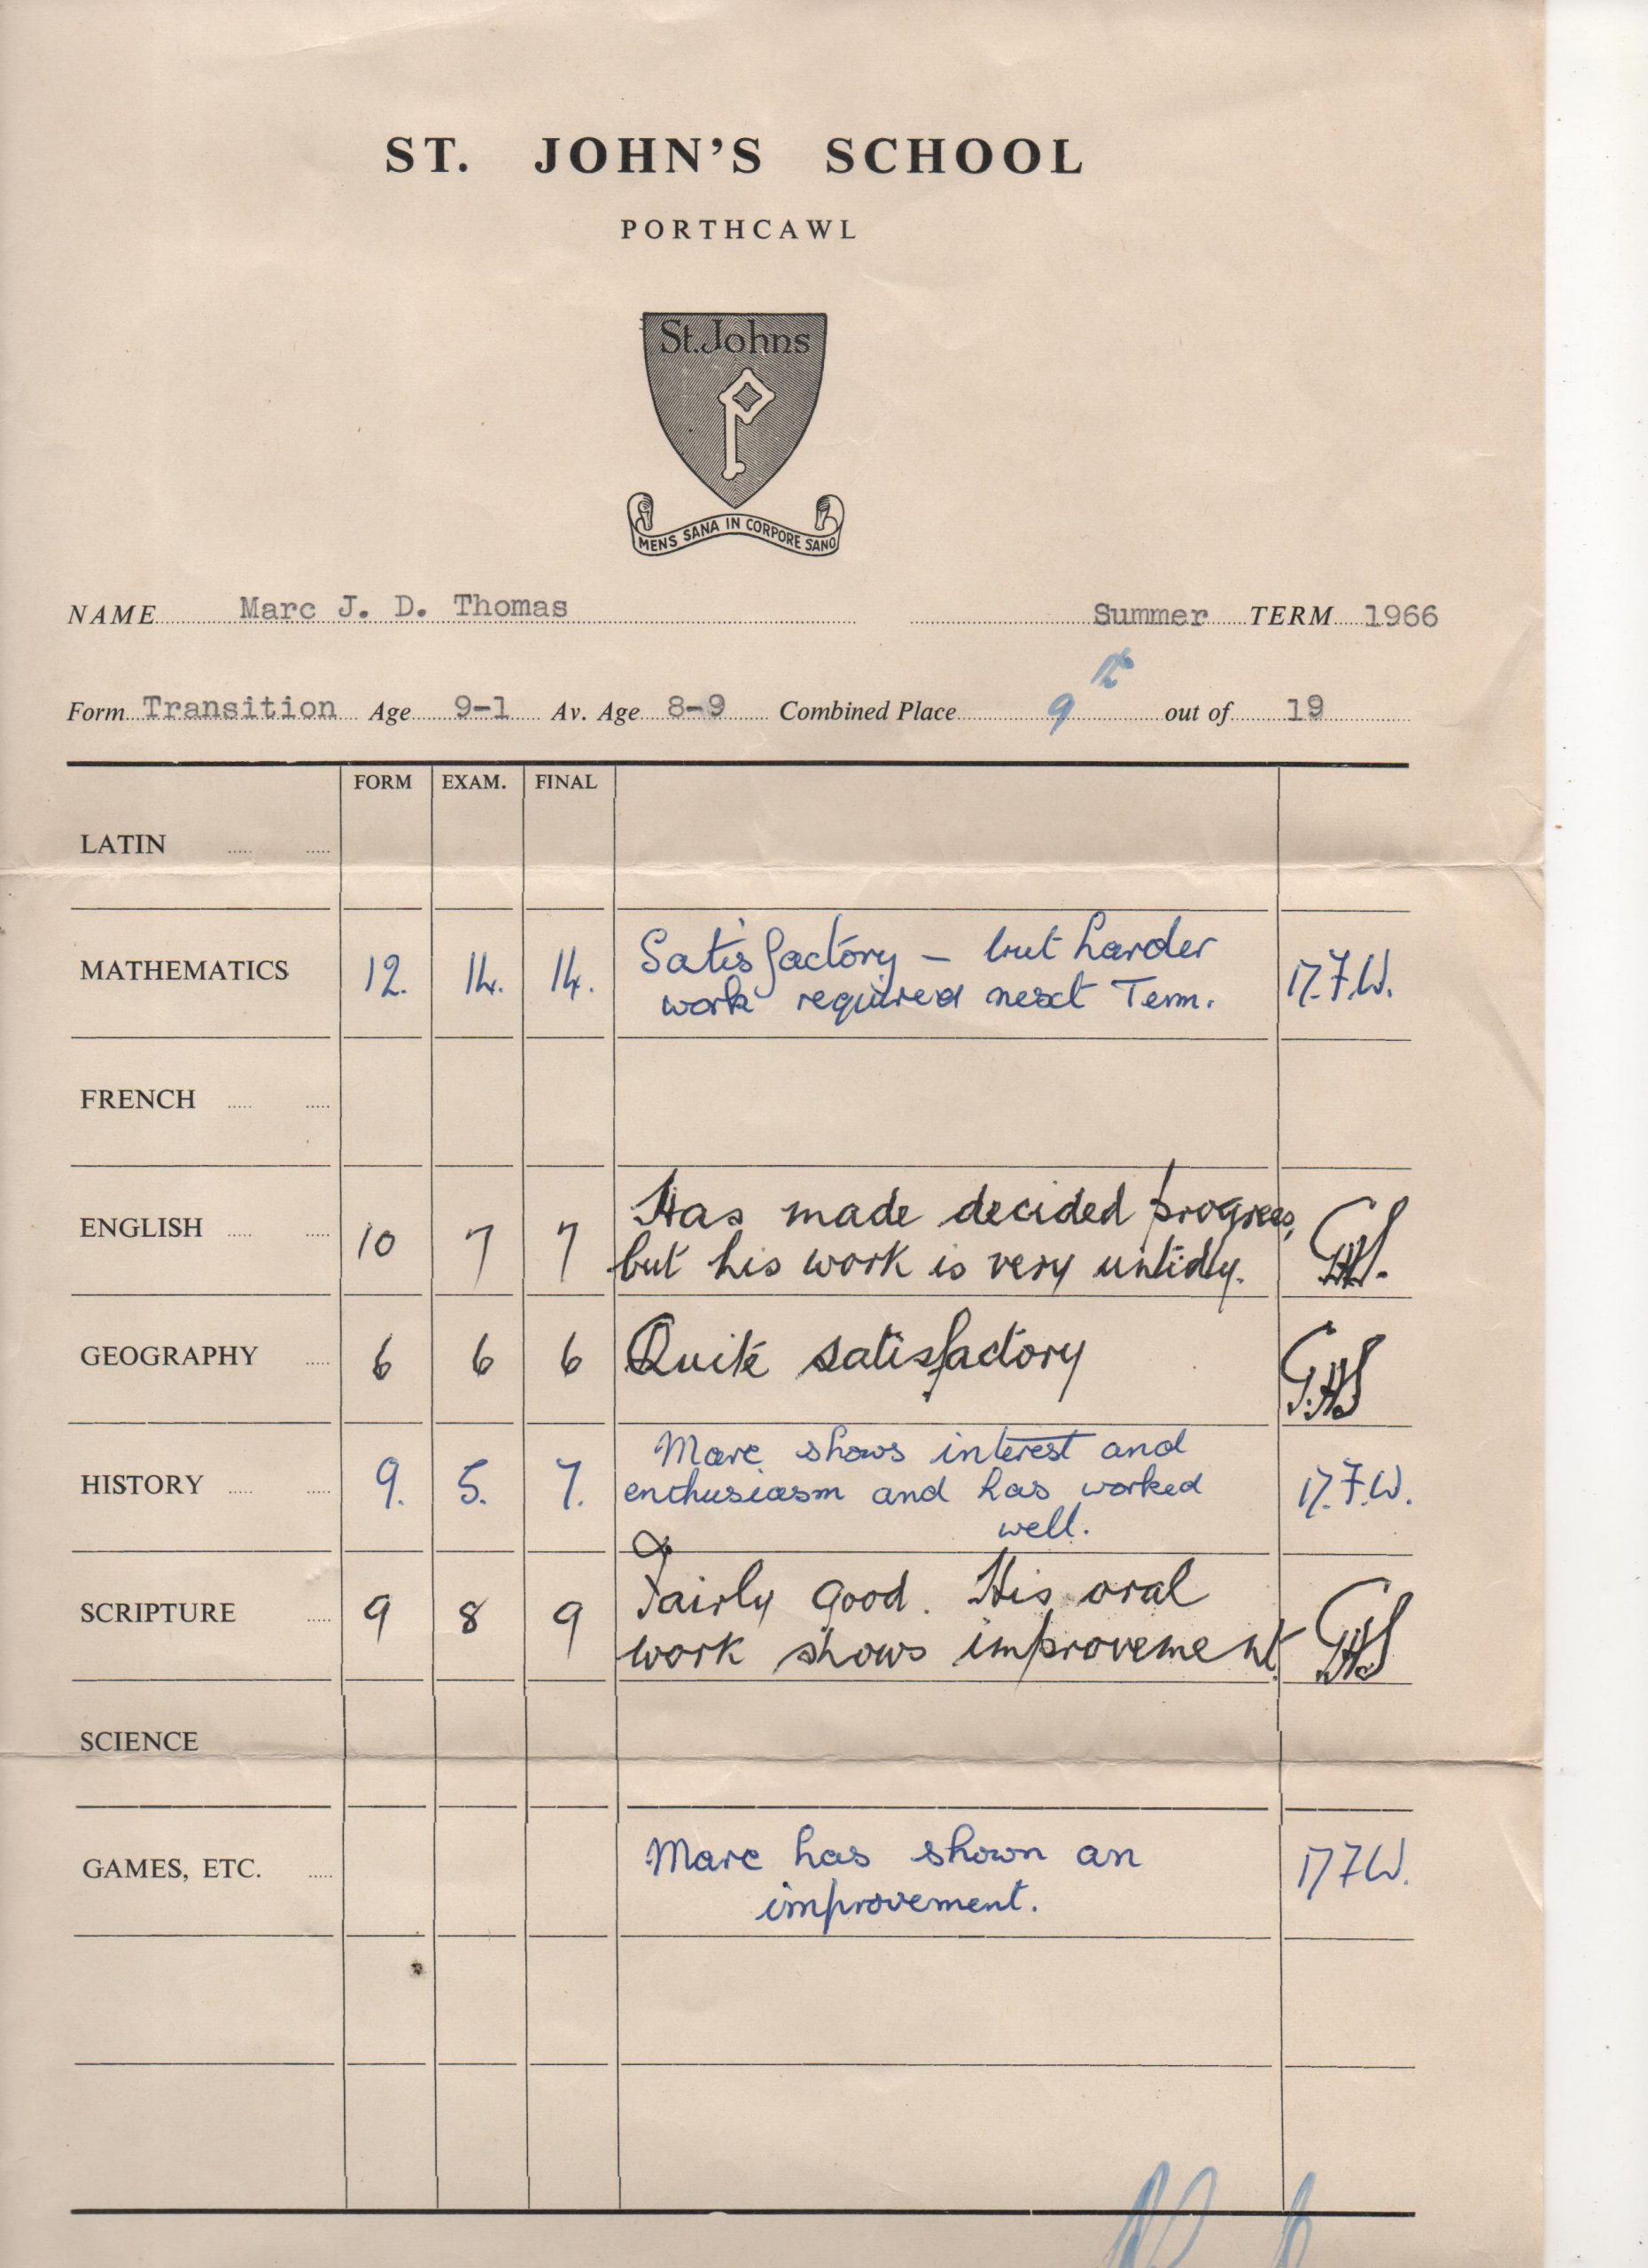 ST. JOHN'S SCHOOL
PORTHCAWL
St. Johns
MENS SANA IN CORPORE SANO
NAME Marc J. D. Thomas Summer TERM 1966
Form Transition Age 9-1 Av. Age 8-9 Combined Place 9th out of 19
FORM EXAM. FINAL
LATIN
MATHEMATICS 12. 14. 14. Satisfactory – but harder
work required next Term.
FRENCH
ENGLISH 10 7 7 Has made decided progress,
but his work is very untidy.
GEOGRAPHY 6 6 6 Quite satisfactory
HISTORY 9. 5. 7. Marc shows interest and
enthusiasm and has worked
well.
SCRIPTURE 9 8 9 Fairly good. His oral
work shows improvement.
SCIENCE
GAMES, ETC. Marc has shown an
improvement.